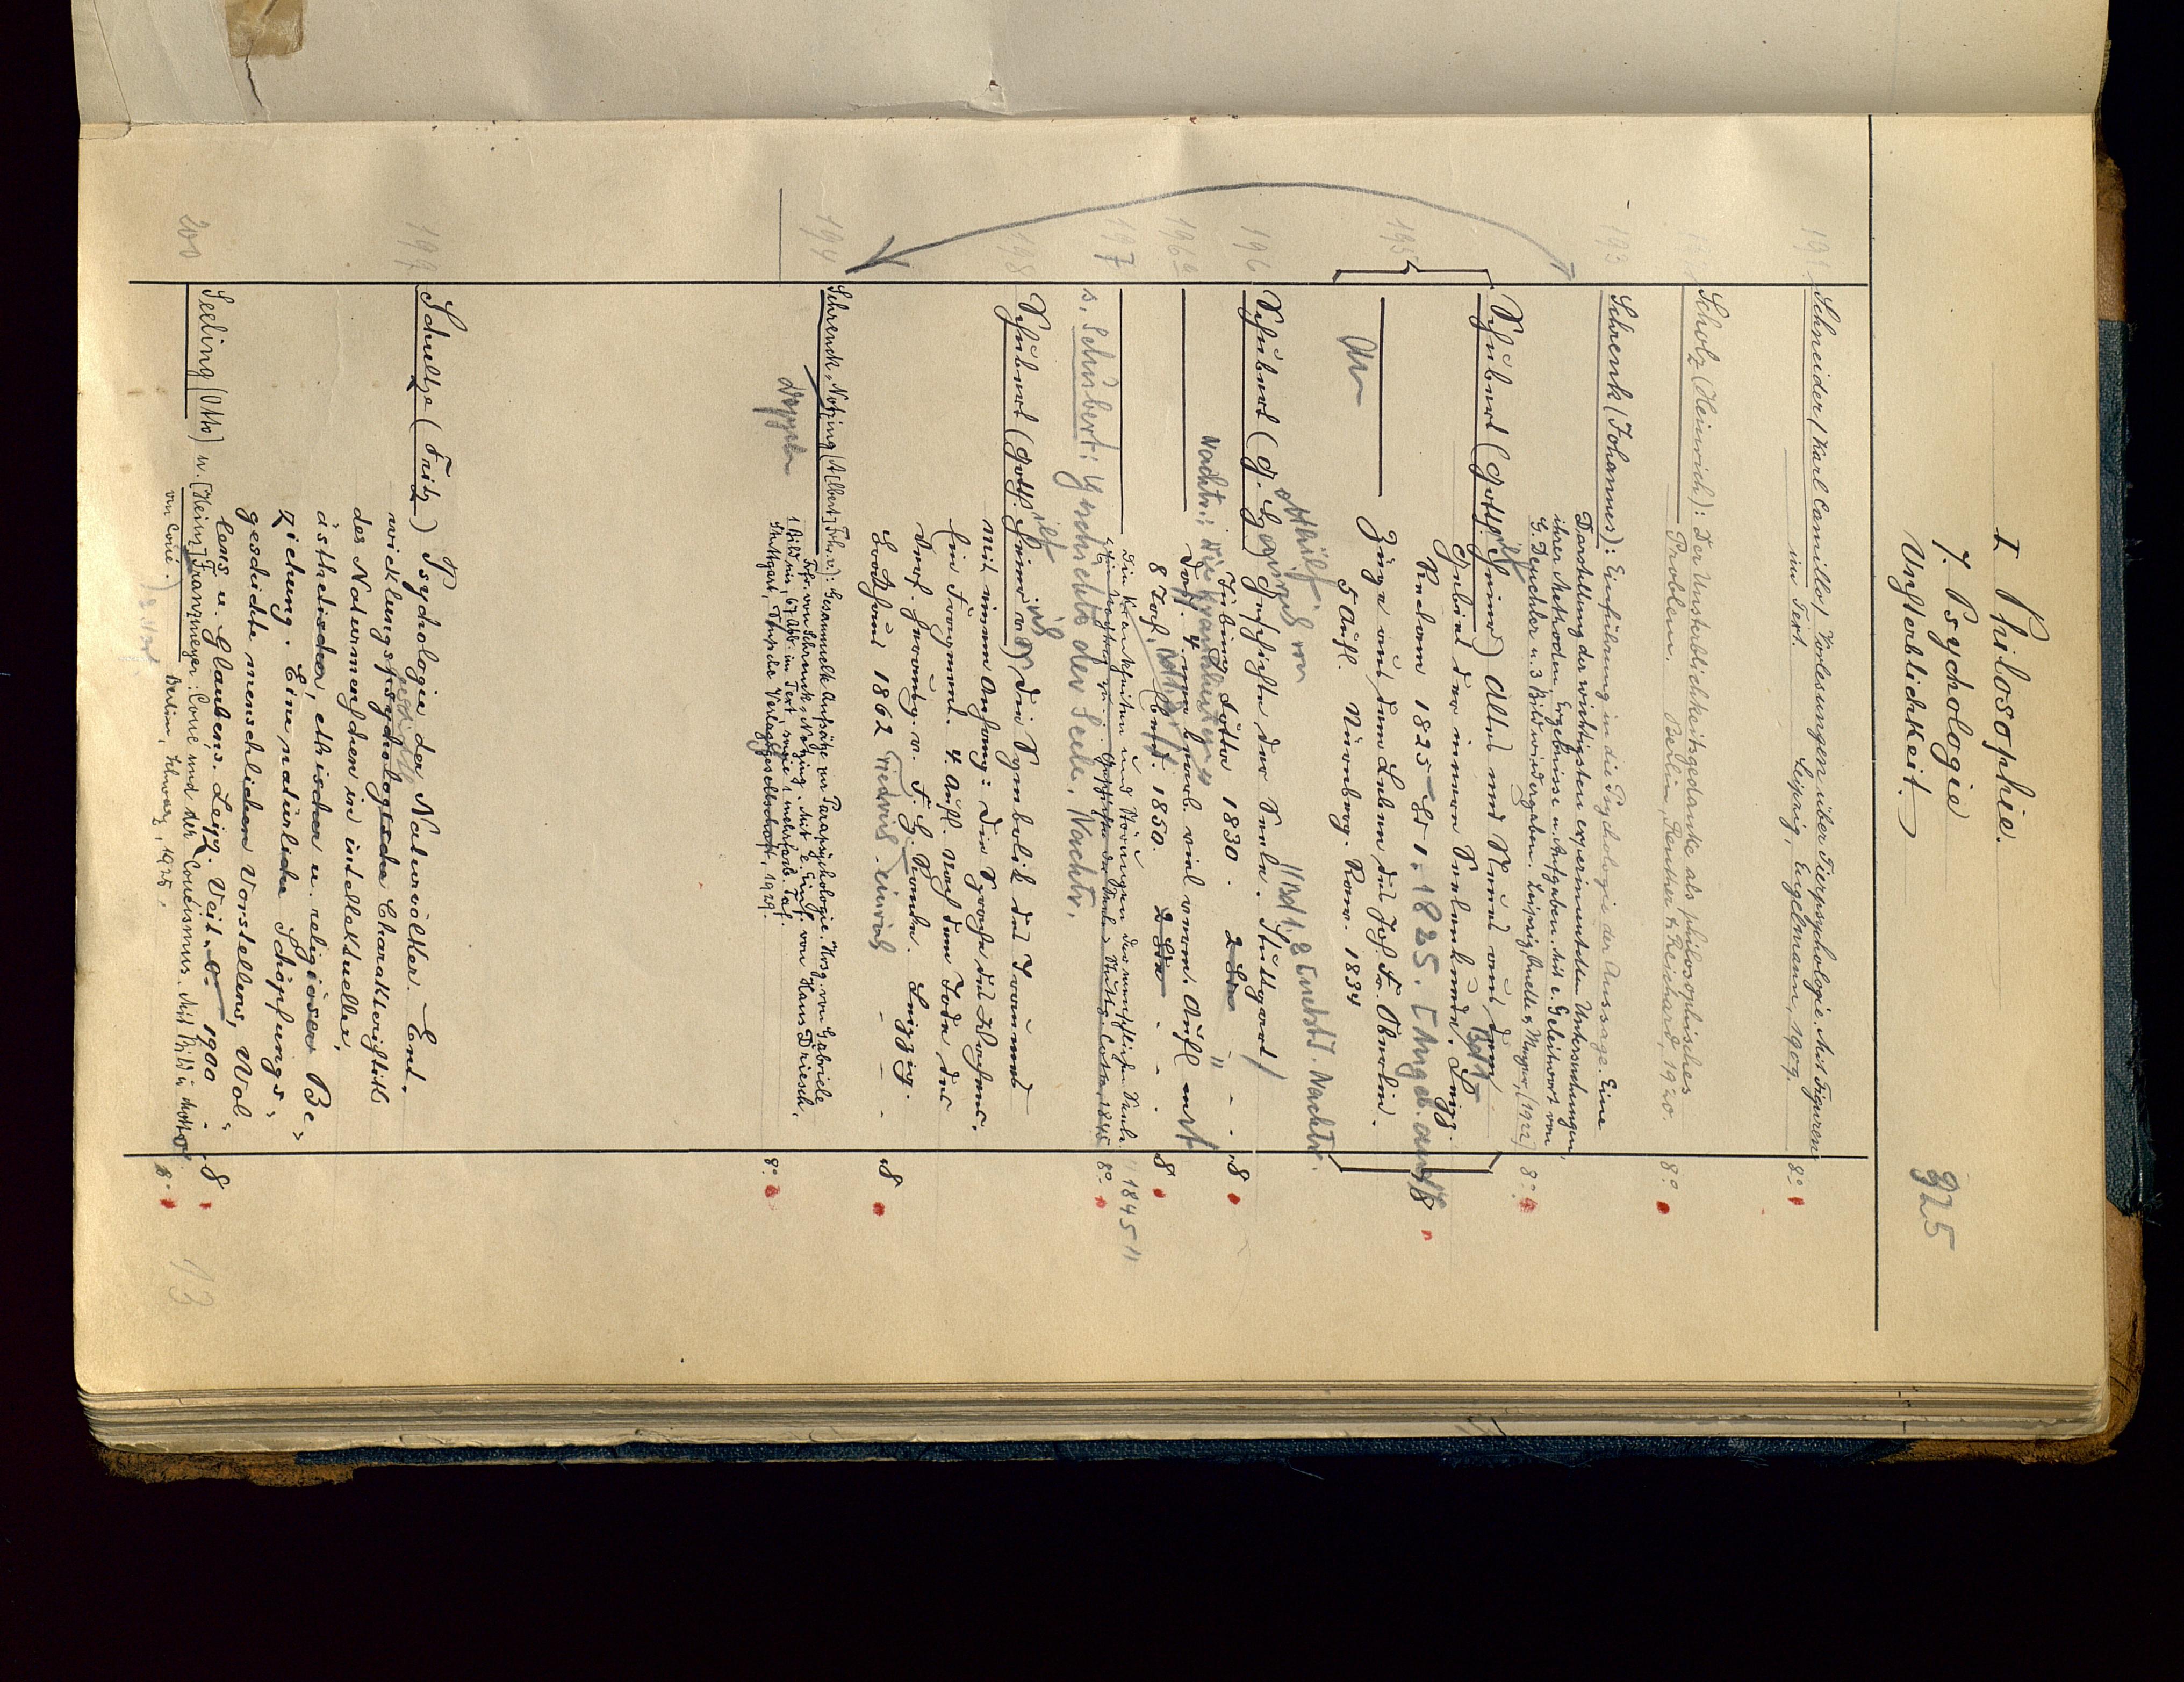 I Philosophie.
7. Psychologie
Unsterblichkeit.
325
191 Schneider (Karl Camillo): Vorlesungen über Tierpsychologie. Mit Figuren
im Text. Leipzig, Engelmann, 1909. 8°
Scholz (Heinrich): Der Unsterblichkeitsgedanke als philosophisches
Problem. Berlin, Reuther & Reichard, 1920. 8°
193 Schrenk (Johannes): Einführung in die Psychologie der Aussage. Eine
Darstellung der wichtigsten experimentellen Untersuchungen,
ihrer Methoden, Ergebnisse u. Aufgaben. Mit e. Geleitwort von
G. Deuchler u. 3 Bildwiedergaben. Leipzig, Quelle & Meyer, [1922] 8°
195 Schubert (Gotth. Heinr.) Altes und Neues aus dem
Gebiet der innern Seelenkunde. Leipz.
Reclam 1825 1. 1825. [Angeb. an] 8
Züge aus dem Leben des Joh. Fr. Oberlin.
5 Aufl. Nürnberg. Raw. 1834
196 Schubert (G. H.) Geschichte der Seele. Stuttgart /
Bd 1. 2 Nachtr.
Tübing. Cotta 1830. 2 Bde - - 8
Nachtr.: Die Krankheiten
196a Dass. 4. neu bearb. viel verm. Aufl
8 Stuttg. Cotta. 1850. 2 Bde - - 8
197 Die Krankheiten und Störungen der menschlichen Seele.
Ein Nachtrag zu: Geschichte der Seele. Stuttg. Cotta, 1845 8° "1845"
s. Schubert: Geschichte der Seele. Nachtr.
198 Schubert (Gotth. Heinr. v.) Die Symbolik des Traumes
Mit einem Anhang: Die Sprache des Wachens.
Ein Fragment. 4. Aufl. Nach dem Tode des
Verf. herausg. v. F. H. Ranke. Leipzig.
Brockhaus 1862 - - - 8
194 Schrenck-Notzing (A[lbert] Frh. v.): Gesammelte Aufsätze zur Parapsychologie. Hrsg. von Gabriele
Frfr. von Schrenck-Notzing. Mit e. Einf. von Hans Driesch,
1 Bildnis, 67 Abb. im Text, sowie 1 mehrfarb. Taf.
Stuttgart, Deutsche Verlagsgesellschaft, 1929. 8°
199 Schultze (Fritz) Psychologie der Naturvölker. Ent-
wicklungspsychologische Charakteristik
des Naturmenschen in intellektueller,
ästhetischer, ethischer u. religiöser Be-
ziehung. Eine natürliche Schöpfungs-
geschichte menschlichen Vorstellens, Wol-
lens u. Glaubens. Leipz. Veit. 1900 - 8
200 Seeling (Otto) u. [Heinz] Franzmeyer: Coué und der Couéismus. Mit Bild u. Motto
von Coué. Berlin, Schwarz, 1925. 8°